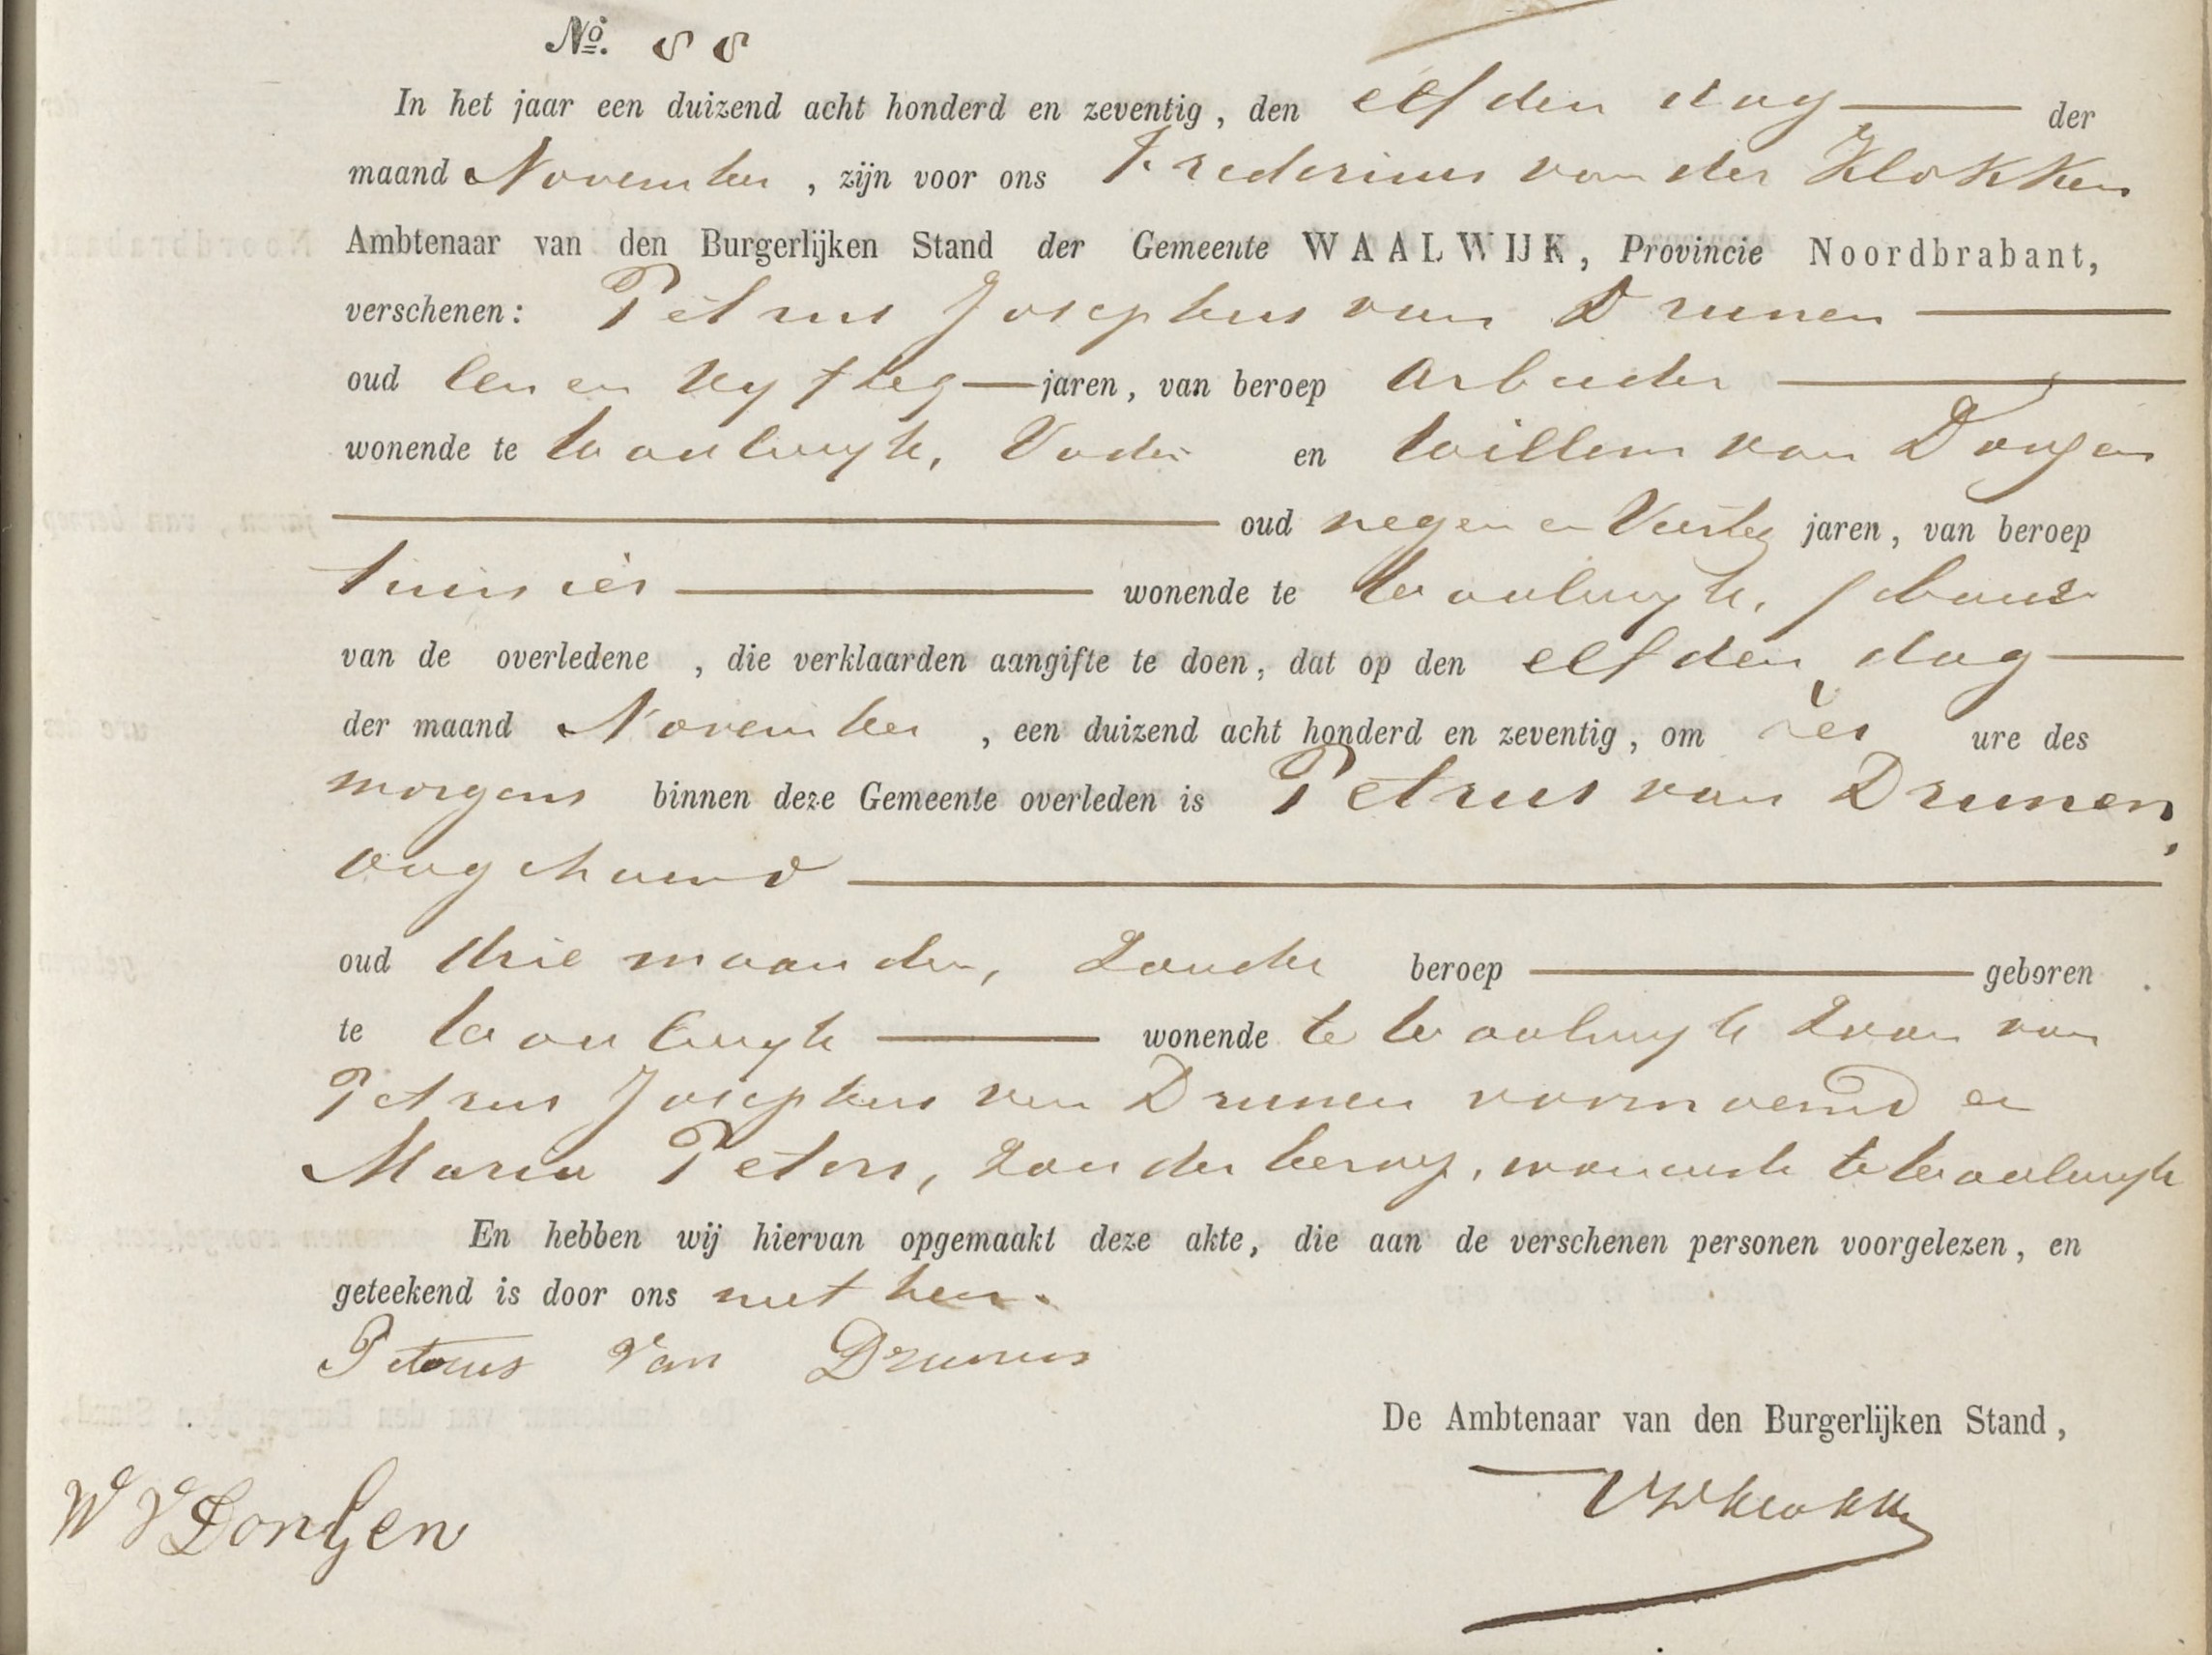 No. 88
In het jaar een duizend acht honderd en zeventig, den elfden dag der
maand November, zijn voor ons Fredericus van der Klokken
Ambtenaar van den Burgerlijken Stand der Gemeente WAALWIJK, Provincie Noordbrabant,
verschenen: Petrus Josephus van Drunen
oud een en vyftig jaren, van beroep Arbeider
wonende te Waalwyk, Vader en Willem van Dongen
oud negen en Veertig jaren, van beroep
tuinier wonende te Waalwyk, gebuur
van de overledene, die verklaarden aangifte te doen, dat op den elfden dag
der maand November, een duizend acht honderd en zeventig, om ure des
morgens binnen deze Gemeente overleden is Petrus van Drunen,
ongehuwd
oud drie maanden, zonder beroep geboren
te Waalwyk wonende te Waalwyk zoon van
Petrus Josephus van Drunen voornoemd en
Maria Peters, zonder beroep, wonende te Waalwyk
En hebben wij hiervan opgemaakt deze akte, die aan de verschenen personen voorgelezen, en
geteekend is door ons met hen.
Petrus van Drunen
De Ambtenaar van den Burgerlijken Stand,
W V Dongen